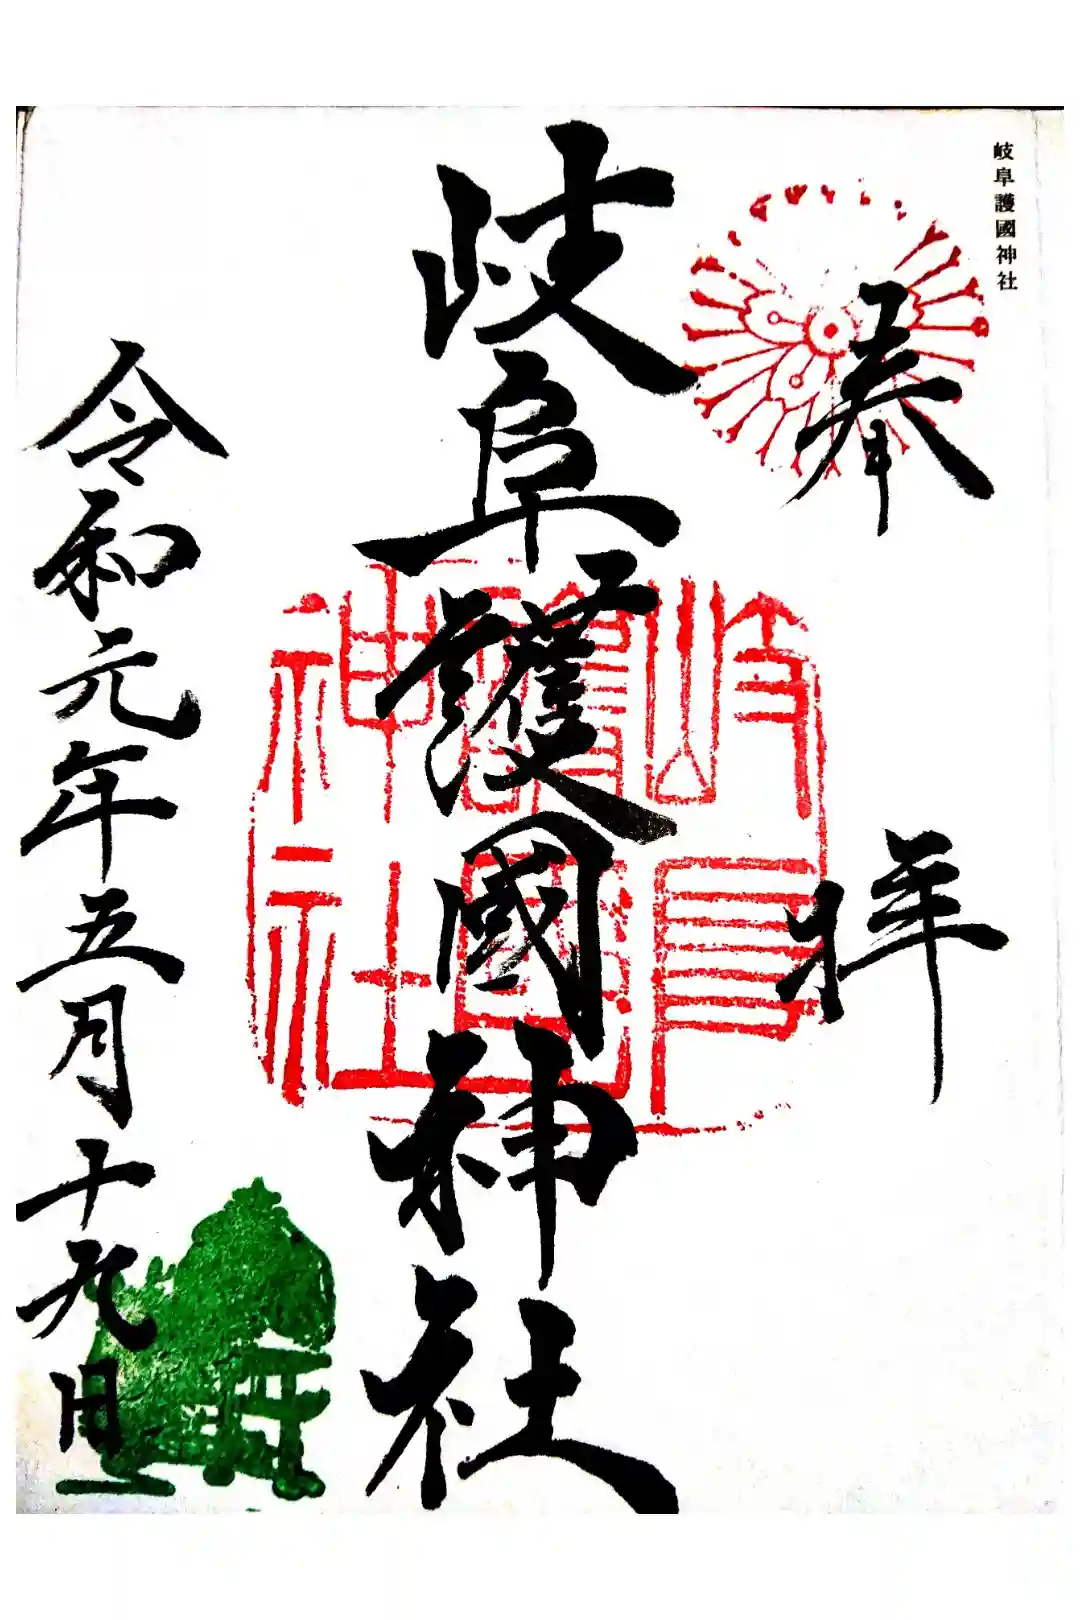 岐阜護國神社
奉拝
岐阜護國神社
岐阜護國神社
令和元年五月十九日